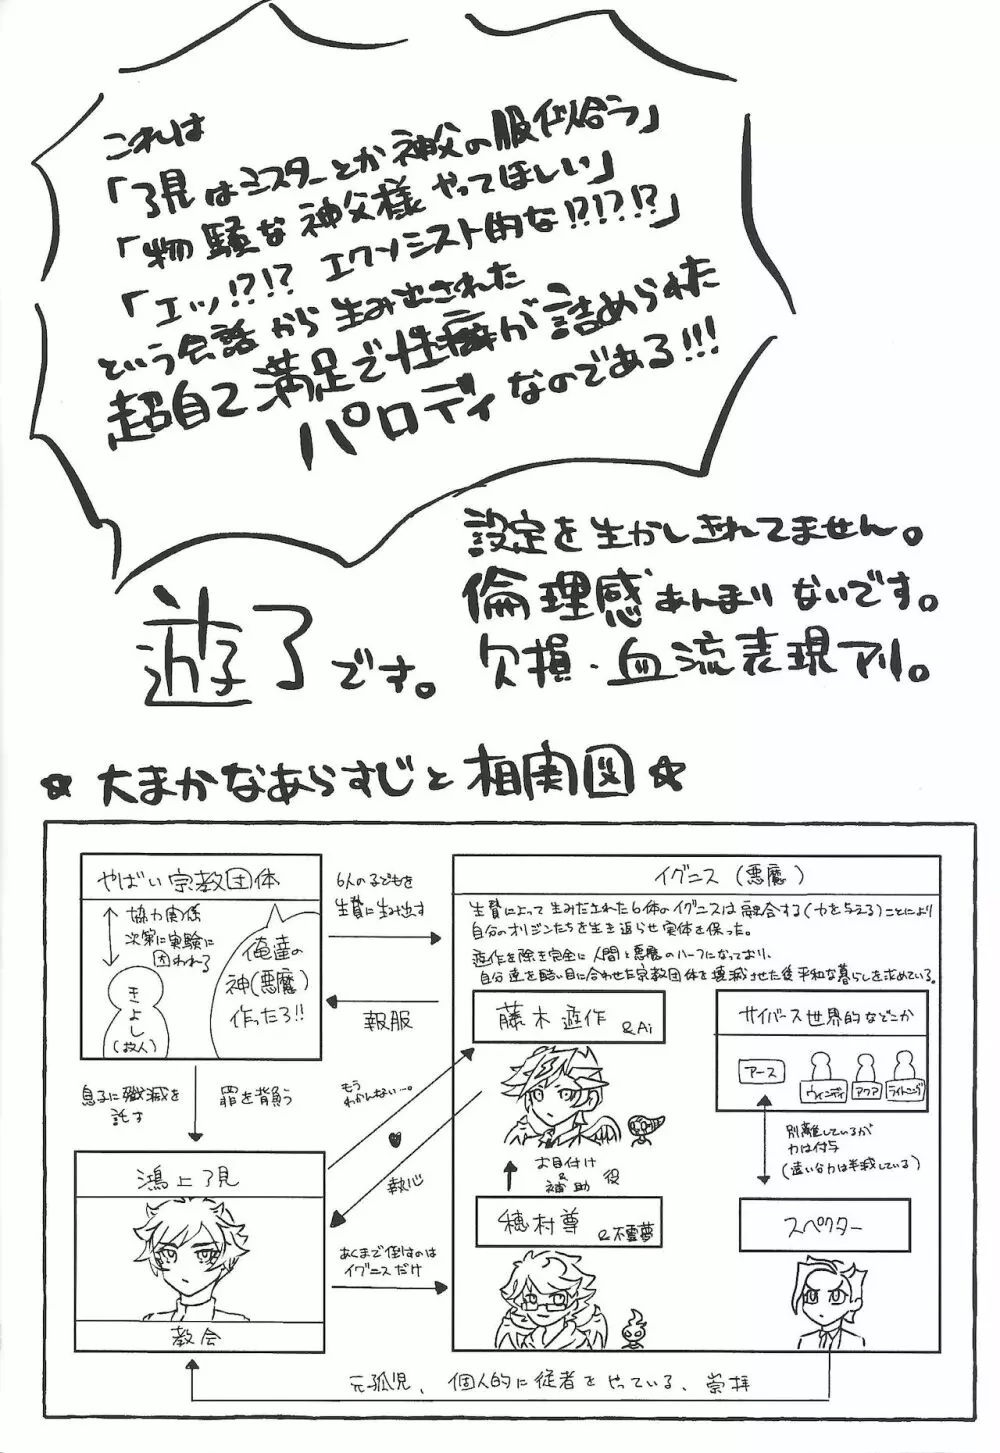 これは
「了見はミスターとか神父の服似合う」
「物騒な神父様やってほしい」
「エッ!?!? エクソシスト的な!?!?!?」
という会話から生み出された
超自己満足で性癖が詰められた
パロディなのである!!!
遊了です。
設定を生かしきれてません。
倫理感あんまりないです。
欠損・血流表現アリ。
☆大まかなあらすじと相関図☆
やばい宗教団体
協力関係
次第に実験に
囚われる
きよし
(故人)
俺達の
神(悪魔)
作ったろ!!
6人の子どもを
生贄に生み出す
報服
イグニス(悪魔)
生贄によって生みだされた6体のイグニスは融合する(力を与える)ことにより
自分のオリジンたちを生き返らせ実体を保った。
遊作を除き完全に人間と悪魔のハーフになっており、
自分達を酷い目に合わせた宗教団体を壊滅させた後平和な暮らしを求めている。
藤木遊作
&Ai
サイバース世界的などこか
アース
ウィンディ
アクア
ライトニング
別離しているが
力は付与
(遠い分力は半減している)
お目付け
&
補助
役
穂村尊
&不霊夢
スペクター
息子に殲滅を
託す
罪を背負う
もう
わかんない…。
執心
あくまで倒すのは
イグニスだけ
鴻上了見
教会
元孤児、個人的に従者をやっている、崇拝